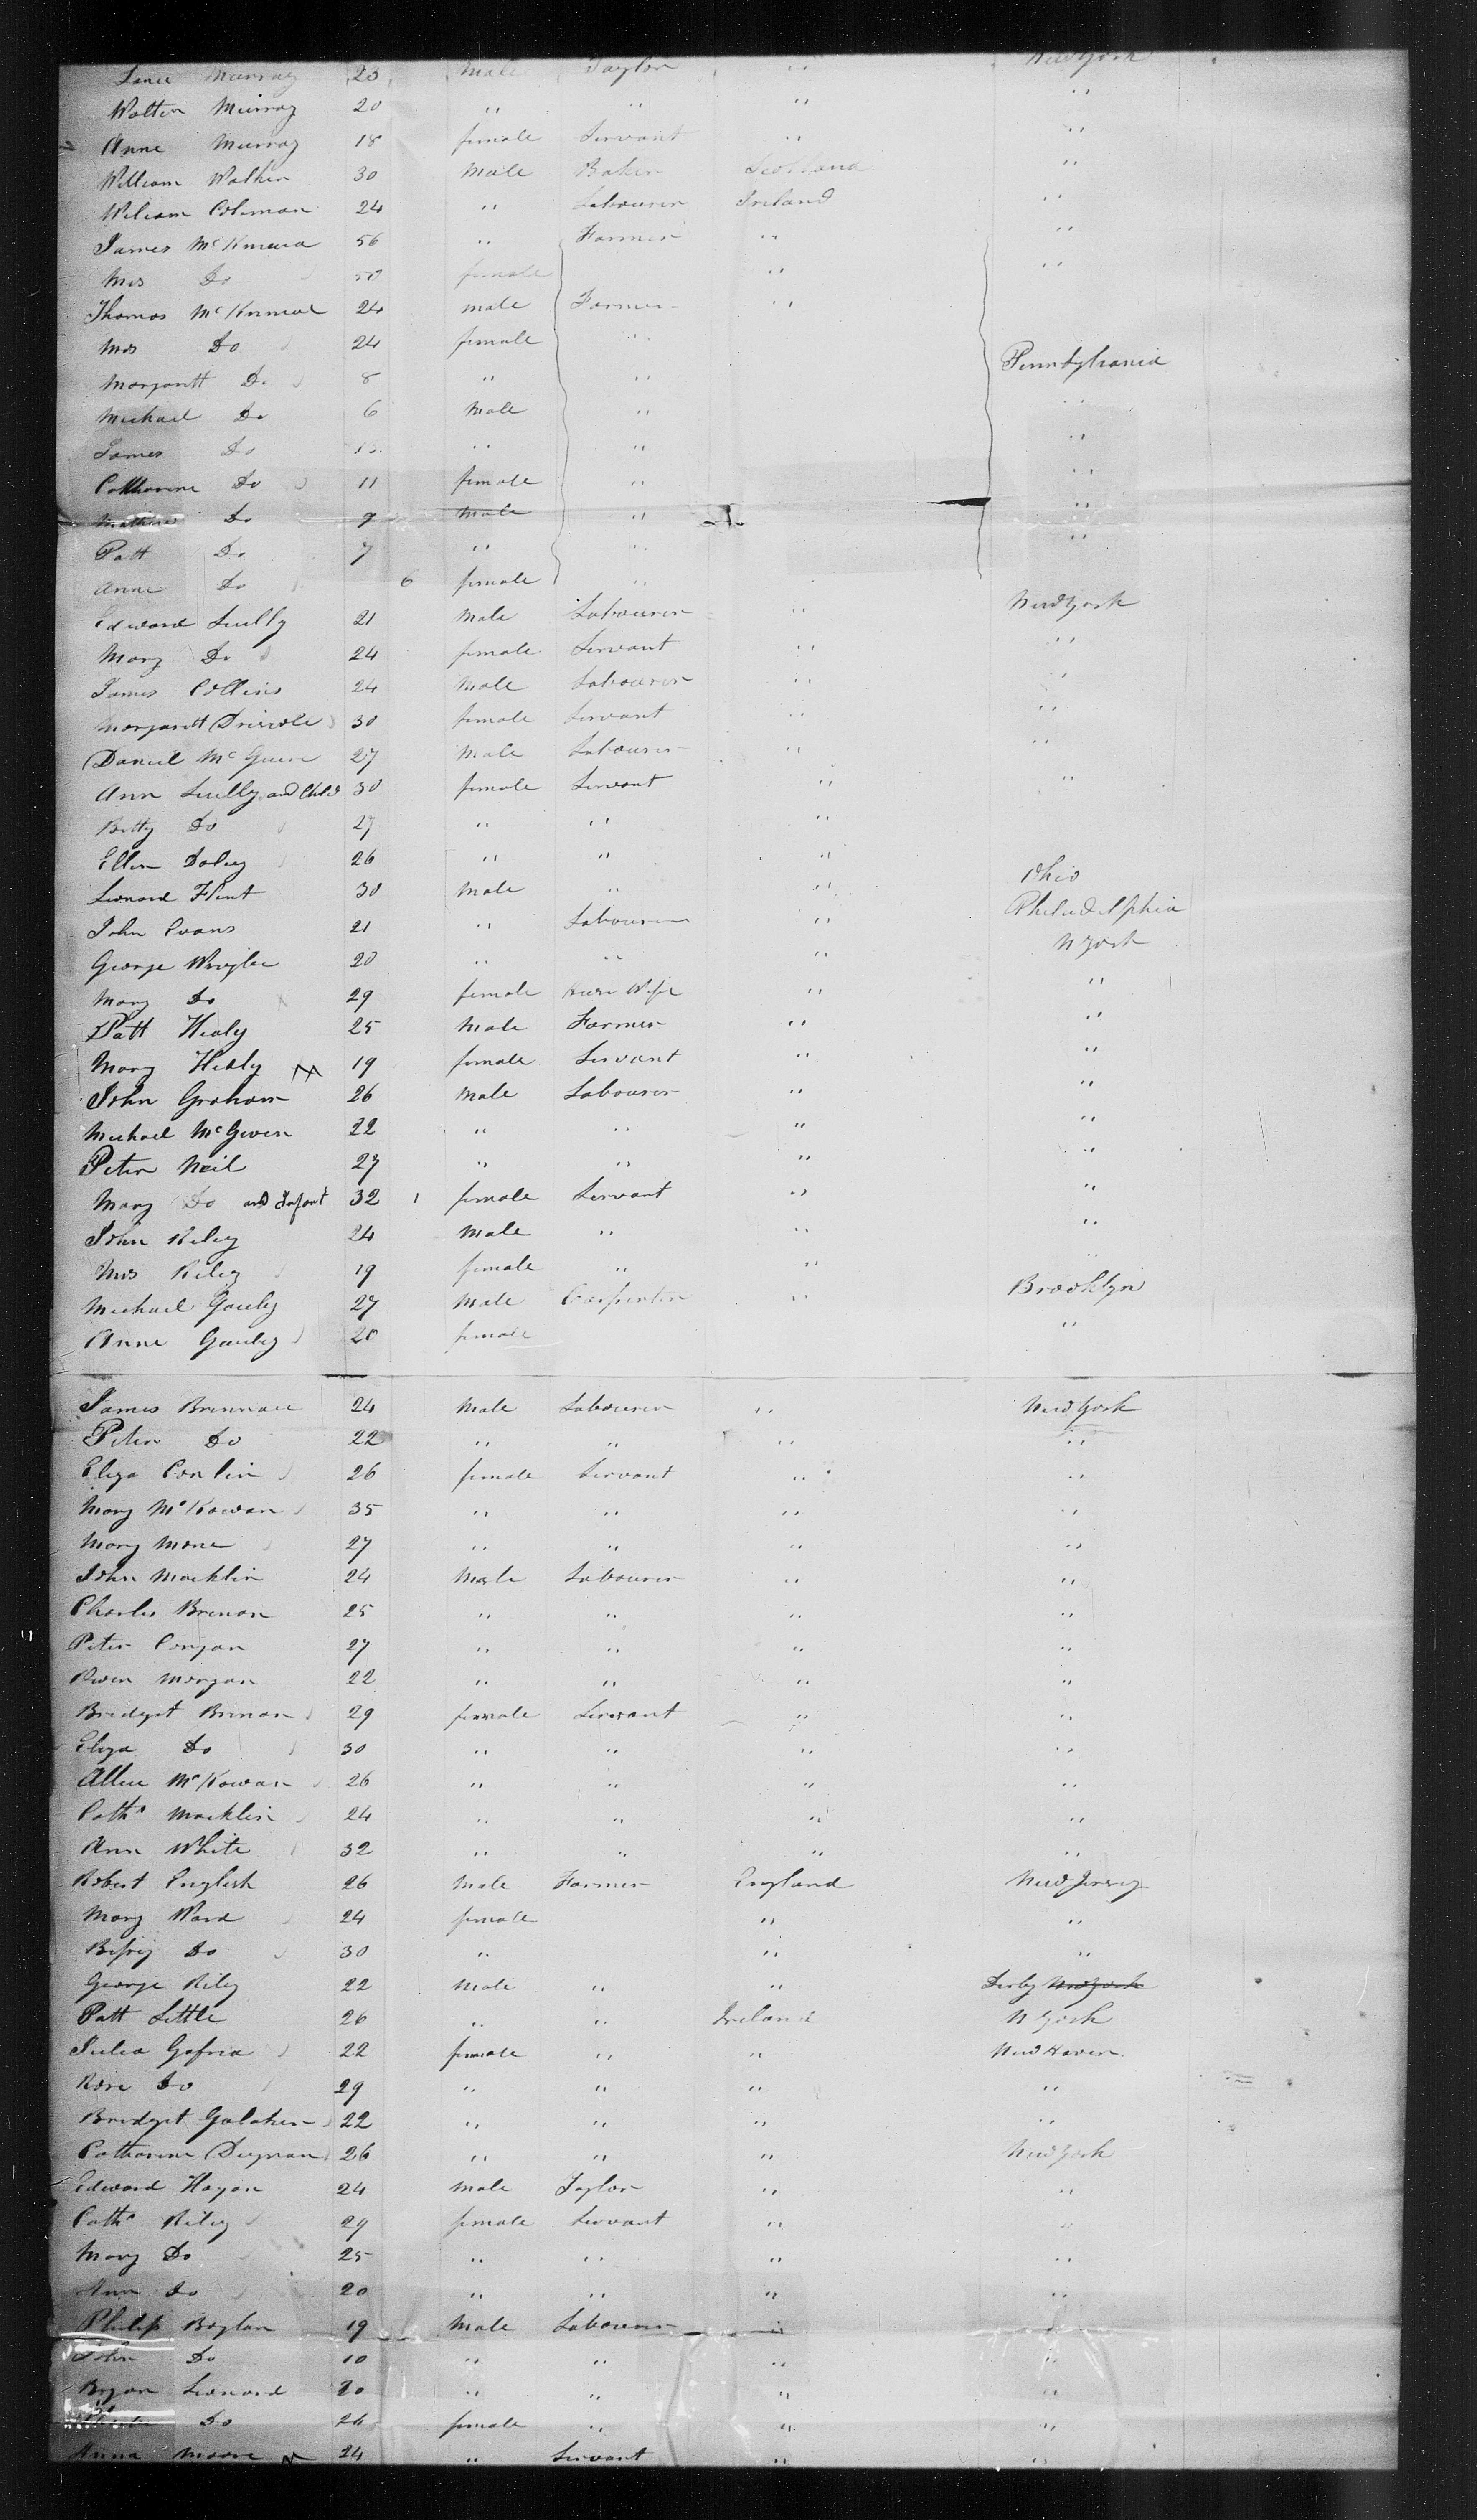 Murray 23 Male Taylor " New York
Walter Murray 20 " " " "
Anne Murray 18 female Servant " "
William Walker 30 Male Baker Scotland "
William Coleman 24 " Labourer Ireland "
James 56 " Farmer " "
Mrs Do 50 female " "
Thomas 24 male Farmer "
Mrs Do 24 female " Pennsylvania
Margarett Do 8 " " "
Michael Do 6 Male " "
James Do " " "
Catharine Do 11 female " "
Do 9 Male " "
Patt Do 7 " "
Anne Do 6 female "
Edward Scully 21 Male Labourer " New York
Mary Do 24 female Servant " "
James Collins 24 Male Labourer " "
Margarett 30 female Servant " "
Daniel 27 Male Labourer " "
Ann Scully and Child 30 female Servant " "
Betty Do 27 " " "
Ellen Doley 26 " " "
Leonard Flint 30 Male " " Ohio
John Evans 21 " Labourer " Philadelphia
George 20 " " " N York
Mary Do 29 female Wife " "
Patt Healy 25 Male Farmer " "
Mary Healy 19 female Servant " "
John Graham 26 Male Labourer " "
Michael McGiven 22 " " " "
Peter Neil 27 " " " "
Mary Do and Infant 32 1 female Servant " "
John Riley 24 Male " " "
Mrs Riley 19 female " " "
Michael 27 Male Carpenter " Brooklyn
Anne 20 female "
James Brennan 24 Male Labourer " New York
Peter Do 22 " " " "
Eliza Conlin 26 female Servant " "
Mary McKowan 35 " " " "
Mary Mone 27 " " " "
John Macklin 24 Male Labourer " "
Charles Brenan 25 " " " "
Peter Corgan 27 " " " "
Owen Morgan 22 " " " "
Bridget Brenan 29 female Servant " "
Eliza Do 30 " " " "
Allice McKowan 26 " " " "
Catha Macklin 24 " " " "
Ann White 32 " " " "
Robert English 26 Male Farmer England New Jersey
Mary Ward 24 female " "
Do 30 " " "
George Riley 22 Male " " Derby New York
Patt Little 26 " " Ireland N York
Julia 22 female " " New Haven
Rose Do 29 " " " "
Bridget Galaher 22 " " " "
Catharine 26 " " " New York
Edward Hagan 24 Male Taylor " "
Catha Riley 29 female Servant " "
Mary Do 25 " " " "
Ann Do 20 " " " "
Philip Boylan 19 Male Labourer " "
John Do 10 " " " "
Bryan Leonard 20 " " " "
Do 26 female " " "
Anna Moore 24 " Servant " "